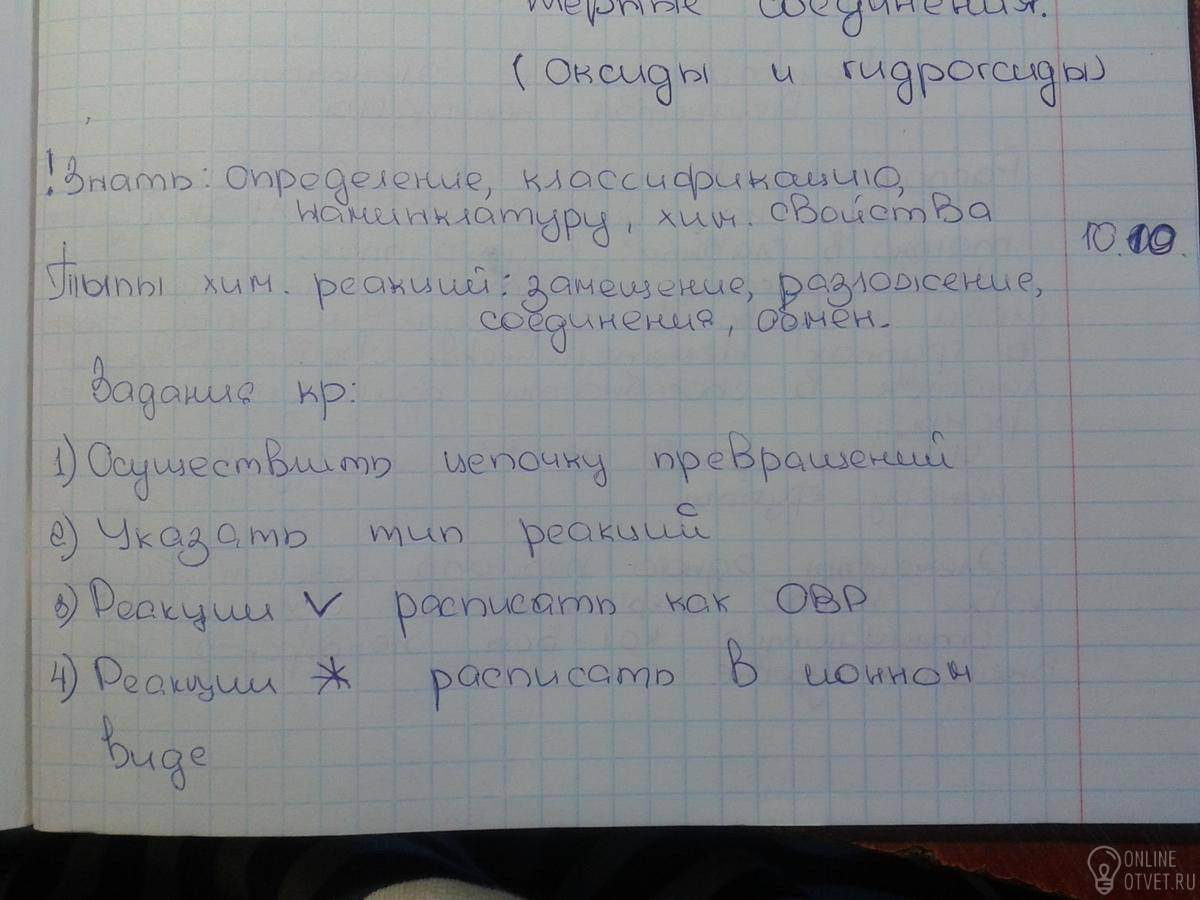 соединения.
(оксиды и гидроксиды)
! Знать: определение, классификацию,
наминклатуру, хим. свойства
10.09.
Типы хим. реакций: замещение, разложение,
соединения, обмен.
Задания кр:
1) Осуществить цепочку превращений
2) Указать тип реакций с
3) Реакции V расписать как ОВР
4) Реакции * расписать в ионном
виде
ONLINE
OTVET.RU